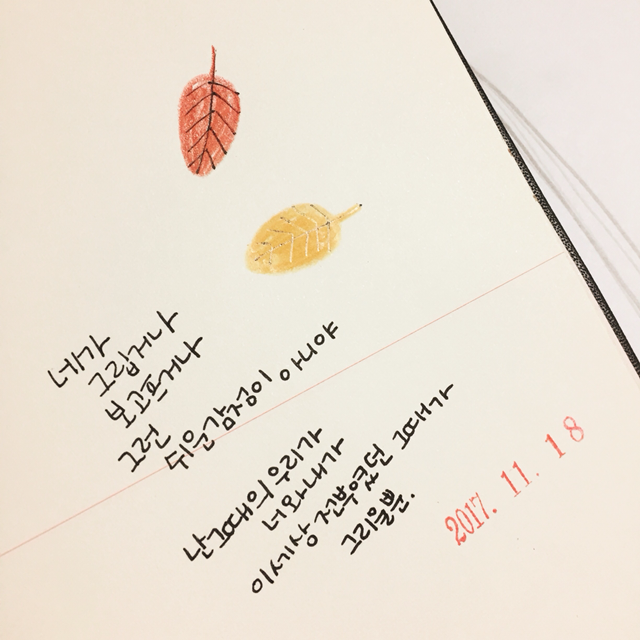 네가
그립거나
보고프거나
그런
쉬운감정이 아니야
난그때의 우리가
너와내가
이세상 전부였던 그때가
그리울뿐.
2017. 11. 18